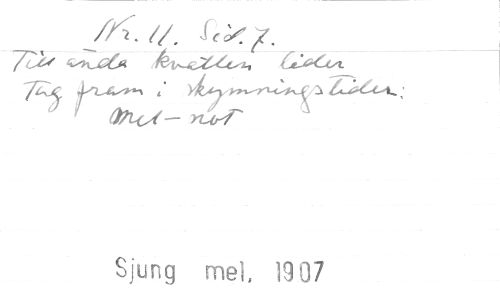 Nr. 11. Sid. 7.
Till ända kvällen lider
Tåg fram i skymningstider:
Mel-not
Sjung mel, 1907